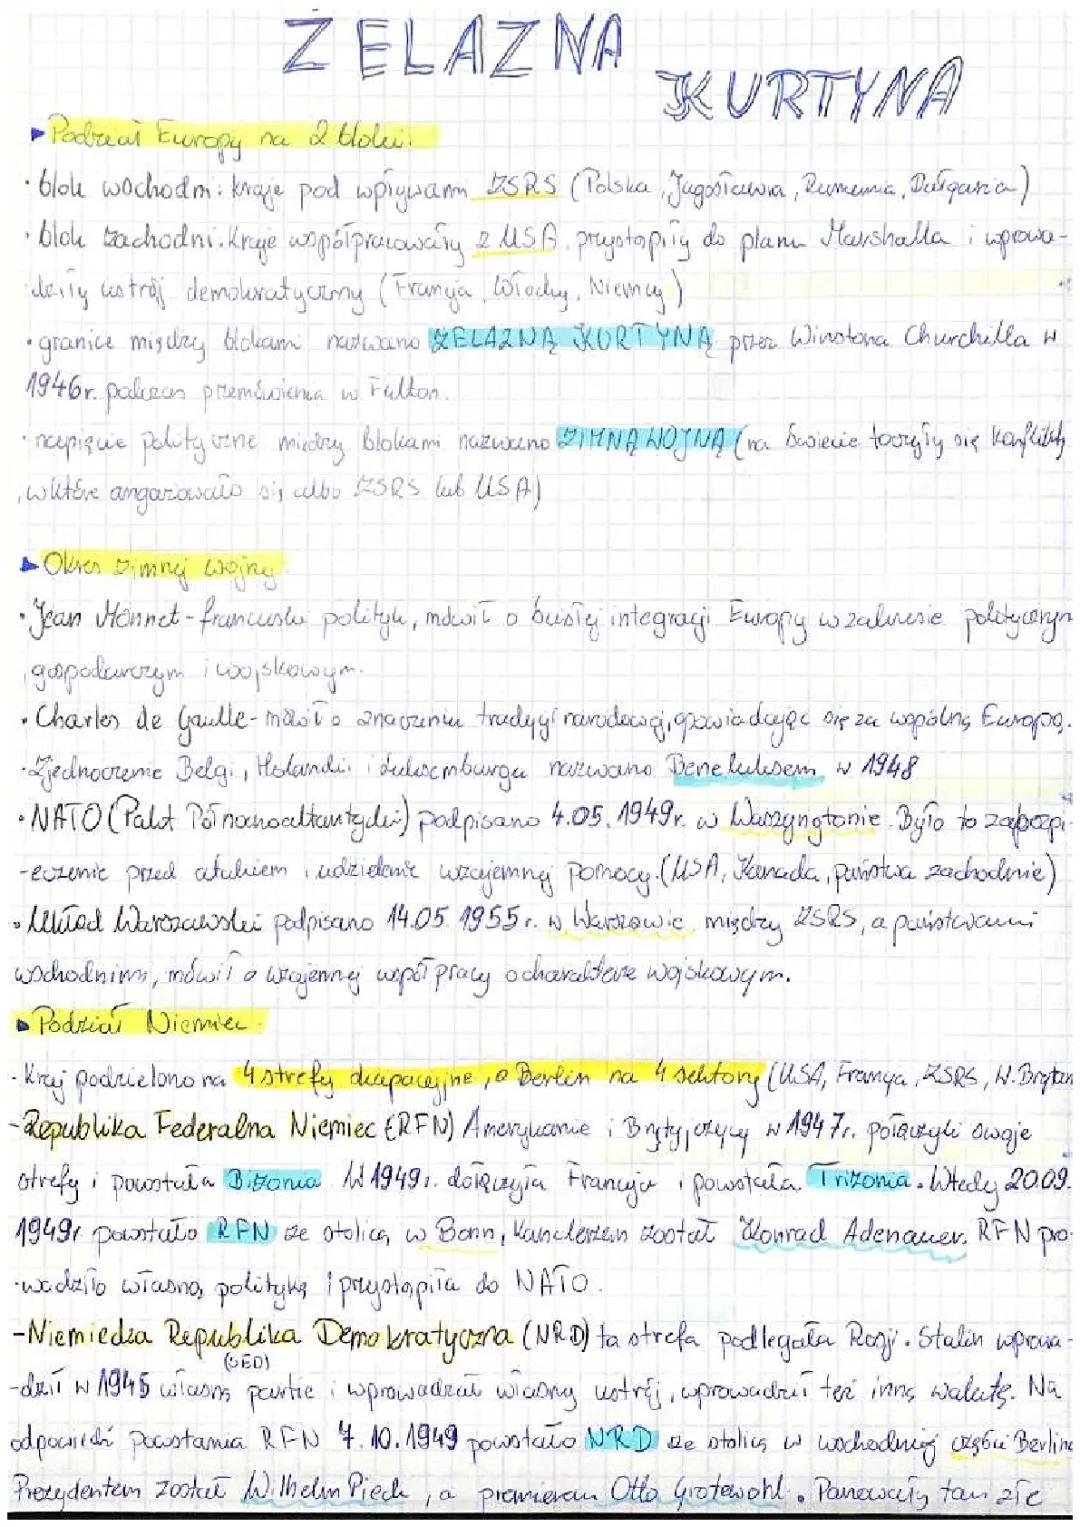 ŻELAZNA
KURTYNA
Podział Europy na 2 bloki:
• blok wschodni: kraje pod wpływami ZSRS (Polska, Jugosławia, Rumunia, Bułgaria)
• blok zachodni. Kraje współpracowały z USA przystąpiły do planu Marshalla i wprowa-
dziły ustrój demokratyczny (Francja, Włochy, Niemcy)
• granice między blokami nazwano ŻELAZNĄ KURTYNĄ przez Winstona Churchilla w
1946r. podczas przemówienia w Fulton.
• napięcie polityczne między blokami nazwano ZIMNĄ WOJNĄ (na świecie toczyły się konflikty
, w które angażowało się albo ZSRS lub USA)
Okres zimnej wojny.
• Jean Monnet - francuski polityk, mówił o ścisłej integracji Europy w zakresie politycznym
, gospodarczym i wojskowym.
• Charles de Gaulle - mówił o znaczeniu tradycji narodowej, opowiadając się za wspólną Europą.
• Zjednoczenie Belgi, Holandii i Luksemburga nazwano Beneluksem w 1948
• NATO (Pakt Północnoatlantycki) podpisano 4.05.1949r. w Waszyngtonie. Było to zabezpi-
-eczenie przed atakiem i udzielenie wzajemnej pomocy. (USA, Kanada, państwa zachodnie)
• Układ Warszawski podpisano 14.05.1955r. w Warszawie między ZSRS, a państwami
wschodnimi, mówił o wzajemnej współpracy o charakterze wojskowym.
Podział Niemiec.
- Kraj podzielono na 4 strefy okupacyjne, a Berlin na 4 sektory (USA, Francja, ZSRS, W. Brytan
- Republika Federalna Niemiec (RFN) Amerykanie i Brytyjczycy w 1947r. połączyli swoje
strefy i powstała Bizonia. W 1949r. dołączyła Francja i powstała Trizonia. Wtedy 20.09.
1949r powstało RFN ze stolicą w Bonn, kanclerzem został Konrad Adenauer. RFN pro-
-wadziło własną politykę i przystąpiła do NATO.
- Niemiecka Republika Demokratyczna (NRD) ta strefa podlegała Rosji. Stalin wprowa-
(SED)
-dził w 1945 własną partie i wprowadzał własny ustrój, wprowadził też inną walutę. Na
odpowiedź powstania RFN 7.10.1949 powstało NRD ze stolicą w wschodniej części Berlina
Prezydentem został Wilhelm Pieck, a premierem Otto Grotewohl. Panowały tam złe